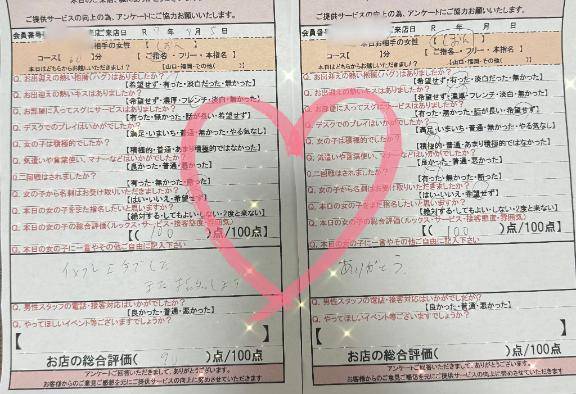 ご提供サービスの向上の為、アンケートにご協力お願いいたします。
会員番号
ご来店日 R 7年 9月 5日
お相手の女性
コース【60】分
【ご指名・フリー・本指名】
本日はどちらからお越しいただきましたか？【山口・福岡・その他( )】
Q. お出迎えの熱い抱擁(ハグ)はありましたか？
【希望せず・有った・淡白だった・無かった】
Q. お出迎えの熱いキスはありましたか？
【希望せず・濃厚・フレンチ・淡白・無かった】
Q. お部屋に入ってスグにサービスはありましたか？
【有った・無かった・話が長い・希望せず】
Q. デスクでのプレイはいかがでしたか？
【満足・いまいち・普通・無かった・やる気なし】
Q. 女の子は積極的でしたか？
【積極的・普通・あまり積極的ではなかった】
Q. 気遣いや言葉使い、マナーなどはいかがでしたか？
【良かった・普通・悪かった】
Q. 二回戦はされましたか？
【有った・無かった・断った】
Q. 女の子から名刺はお受け取りいただきましたか？
【はい・いいえ・希望せず】
Q. 本日の女の子をまた指名したいと思いますか？
【絶対する・してもよい・しない・2度と来ない】
Q. 本日の女の子の総合評価(ルックス・サービス・接客態度・雰囲気)
【( 100 )点/100点】
Q. 本日の女の子に一言やその他ご自由に記入下さい
Q. 男性スタッフの電話・接客対応はいかがでしたか？
【良かった・普通・悪かった】
Q. やってほしいイベント等ございますでしょうか？
【 】
お店の総合評価( 90 )点/100点
アンケートに回答いただきまして、ありがとうございます。
お客様からのご意見ご感想を元にご提供サービスの向上に努めさせていただきます
ご提供サービスの向上の為、アンケートにご協力お願いいたします。
会員番号
ご来店日 R
本日お相手の女性
コース【 】分
【ご指名・フリー・本指名】
本日はどちらからお越しいただきましたか？【山口・福岡・その他( )】
Q. お出迎えの熱い抱擁(ハグ)はありましたか？
【希望せず・有った・淡白だった・無かった】
Q. お出迎えの熱いキスはありましたか？
【希望せず・濃厚・フレンチ・淡白・無かった】
Q. お部屋に入ってスグにサービスはありましたか？
【有った・無かった・話が長い・希望せず】
Q. デスクでのプレイはいかがでしたか？
【満足・いまいち・普通・無かった・やる気なし】
Q. 女の子は積極的でしたか？
【積極的・普通・あまり積極的ではなかった】
Q. 気遣いや言葉使い、マナーなどはいかがでしたか？
【良かった・普通・悪かった】
Q. 二回戦はされましたか？
【有った・無かった・断った】
Q. 女の子から名刺はお受け取りいただきましたか？
【はい・いいえ・希望せず】
Q. 本日の女の子をまた指名したいと思いますか？
【絶対する・してもよい・しない・2度と来ない】
Q. 本日の女の子の総合評価(ルックス・サービス・接客態度・雰囲気)
【( 100 )点/100点】
Q. 本日の女の子に一言やその他ご自由に記入下さい
ありがとう
Q. 男性スタッフの電話・接客対応はいかがでしたか？
【良かった・普通・悪かった】
Q. やってほしいイベント等ございますでしょうか？
【 】
お店の総合評価( )点/100点
アンケートに回答いただきまして、ありがとうございます。
お客様からのご意見ご感想を元にご提供サービスの向上に努めさせていただきます